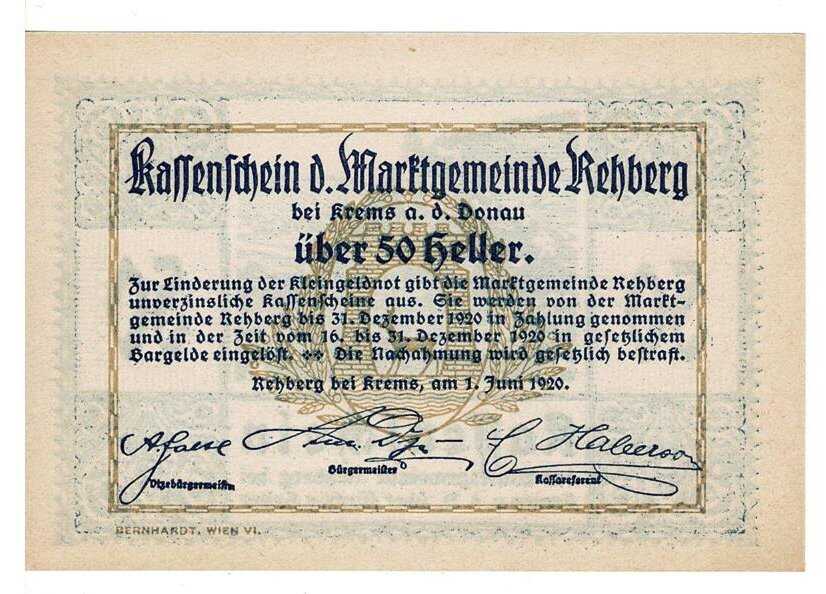 Kassenschein d. Marktgemeinde Rehberg
bei Krems a. d. Donau
über 50 Heller.
Zur Linderung der Kleingeldnot gibt die Marktgemeinde Rehberg
unverzinsliche Kassenscheine aus. Sie werden von der Markt-
gemeinde Rehberg bis 31. Dezember 1920 in Zahlung genommen
und in der Zeit vom 16. bis 31. Dezember 1920 in gesetzlichem
Bargelde eingelöst. ⁘ Die Nachahmung wird gesetzlich bestraft.
Rehberg bei Krems, am 1. Juni 1920.
Vizebürgermeister
Bürgermeister
Kassareferent
BERNHARDT, WIEN VI.